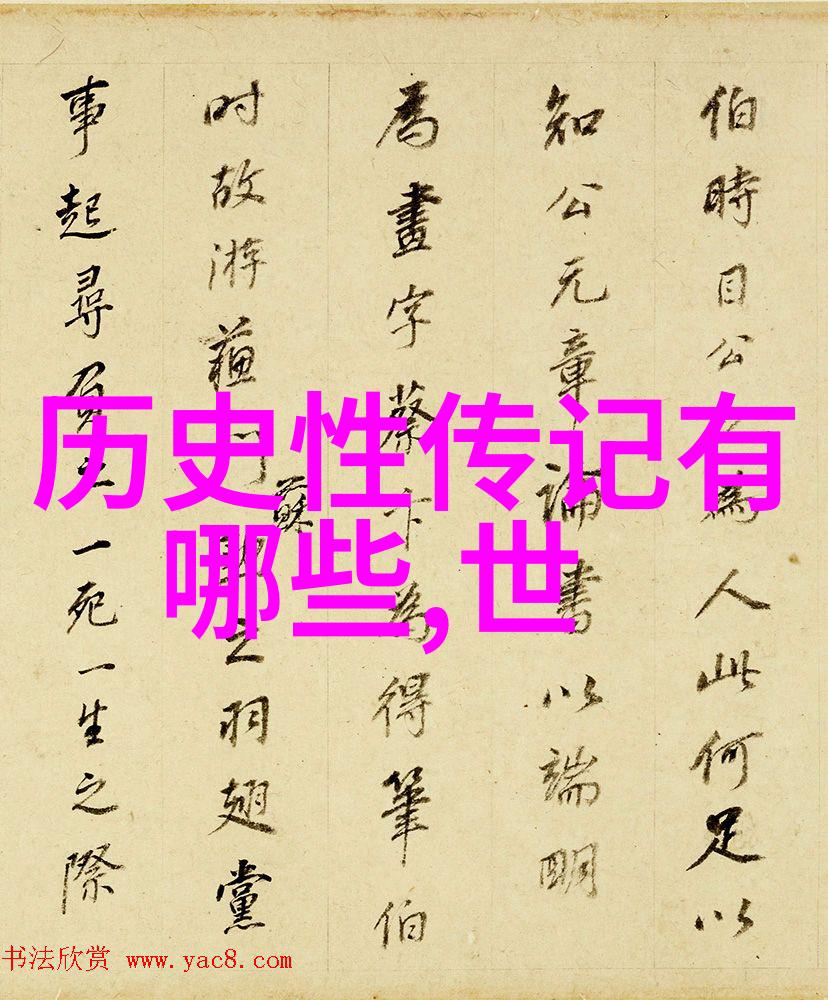 伯時目公為人此何足以
知公元章論書以端明
為畫字蔡卞為得筆伯
时故游蘓門蘇之羽翅黨
事起尋負之一死一生之際
历史性传记有
哪些,世
书法欣赏 www.yac8.com